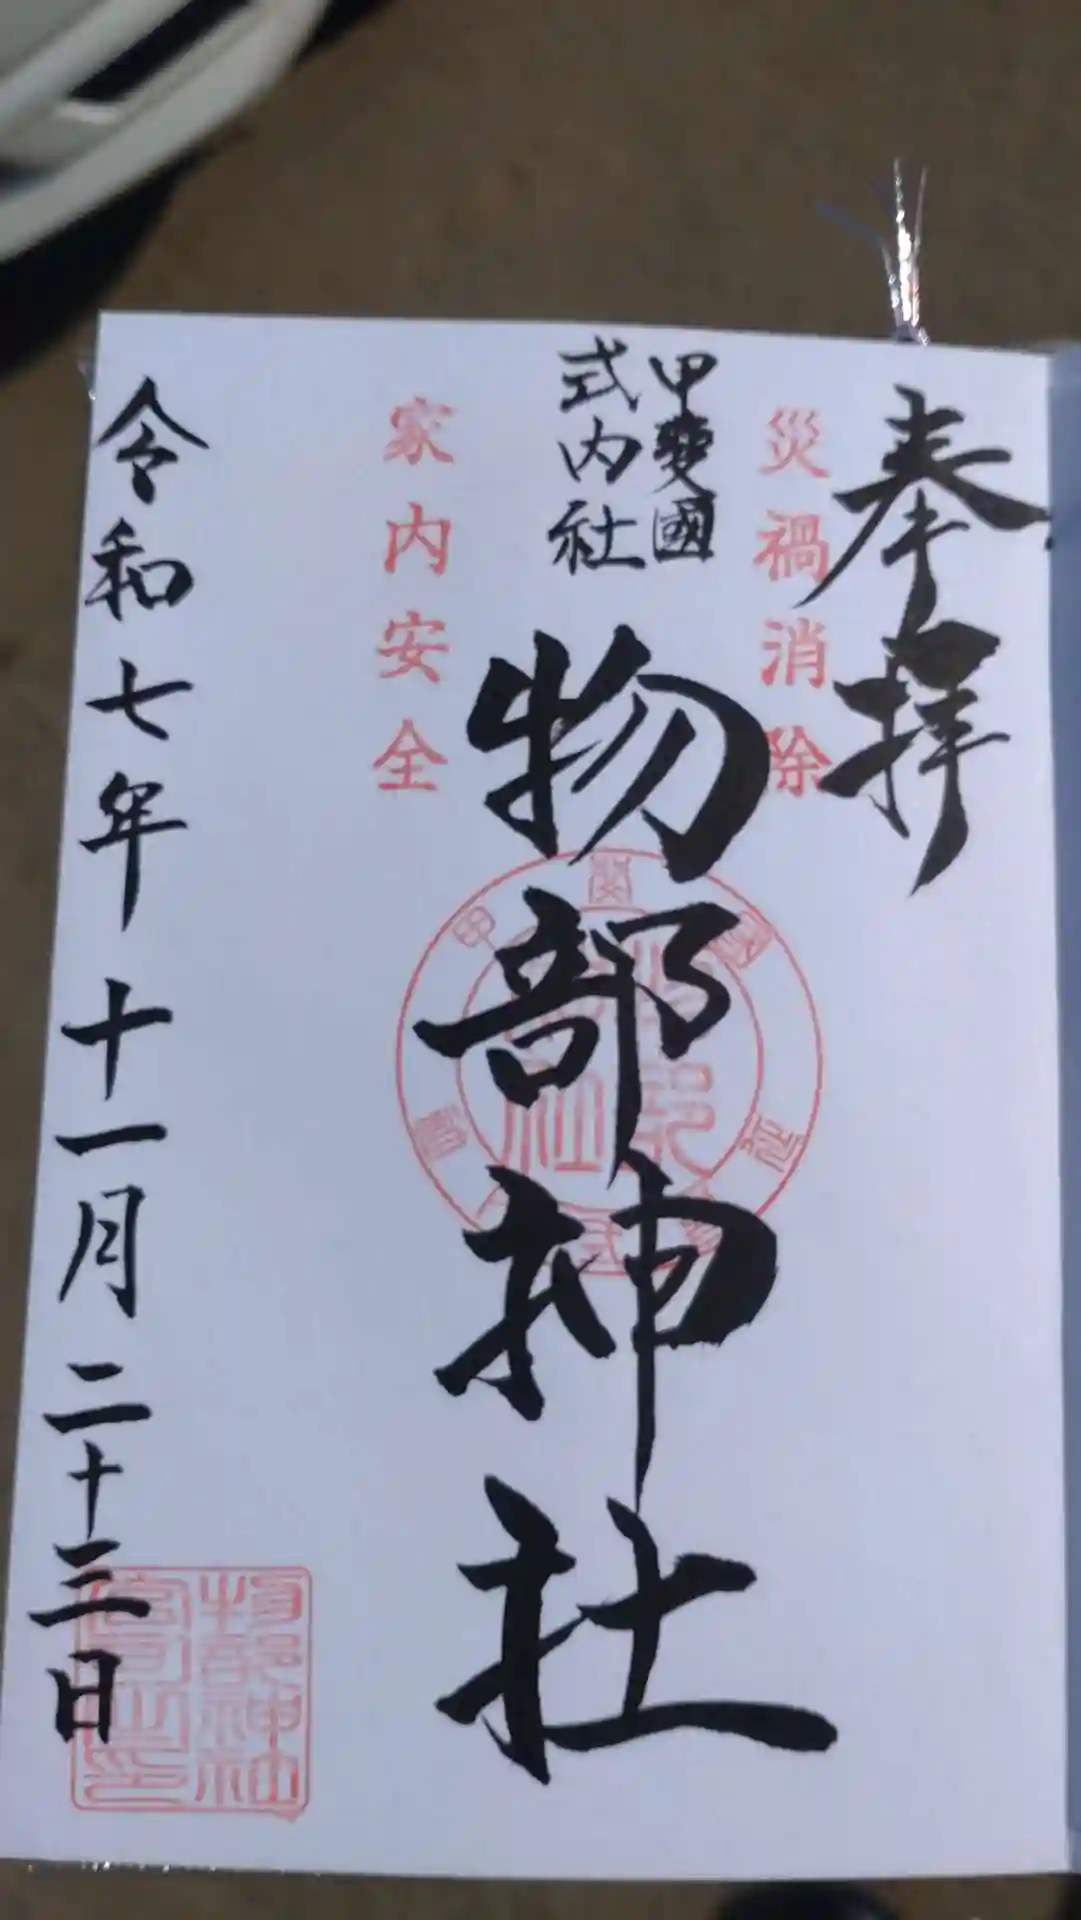 奉拝
災禍消除
甲斐國
式内社
物部神社
家内安全
令和七年十一月二十三日
物部神社
宮司之印